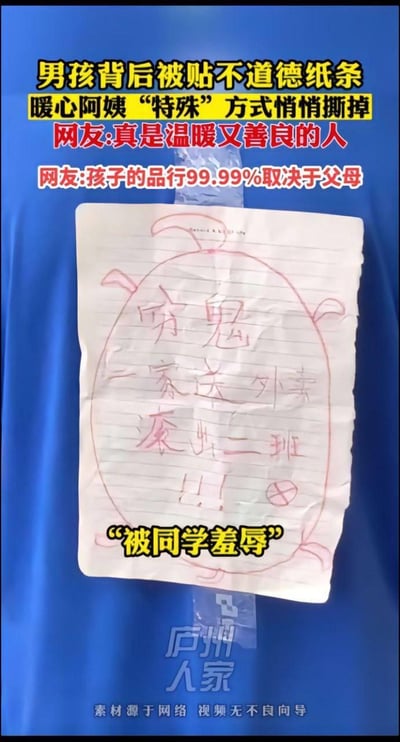 男孩背后被贴不道德纸条
暖心阿姨“特殊”方式悄悄撕掉
网友:真是温暖又善良的人
网友:孩子的品行99.99%取决于父母
穷鬼
一家送外卖
滚出二班
!!!
“被同学羞辱”
庐州
人家
素材源于网络 视频无不良向导